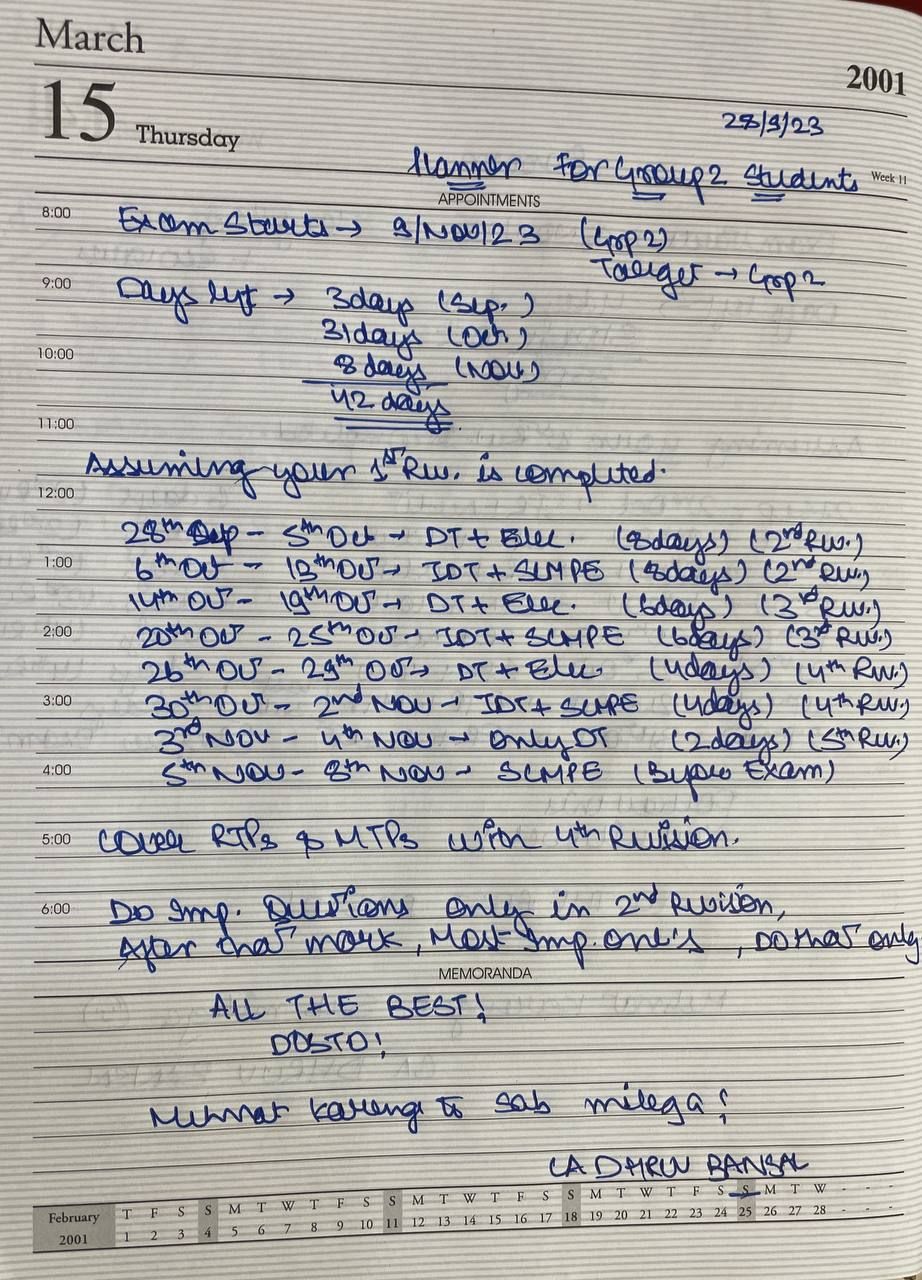 March
2001
15 Thursday
28/9/23
Planner For Group 2 Students
Week 11
APPOINTMENTS
8:00 Exam Starts → 9/NOV/23 (Grp 2)
Target → Grp 2
9:00 Days left → 3 days (Sep.)
31 days (Oct)
10:00 8 days (NOV)
42 days
11:00
Assuming your 1st Rev. is completed.
12:00
28th Sep - 5th Oct → DT + Elec. (8 days) (2nd Rev.)
1:00 6th Oct - 13th Oct → IDT + SCMPE (8 days) (2nd Rev.)
14th Oct - 19th Oct → DT + Elec. (6 days) (3rd Rev.)
2:00 20th Oct - 25th Oct → IDT + SCMPE (6 days) (3rd Rev.)
26th Oct - 29th Oct → DT + Elec. (4 days) (4th Rev.)
3:00 30th Oct - 2nd NOV → IDT + SCMPE (4 days) (4th Rev.)
3rd NOV - 4th NOV → Only DT (2 days) (5th Rev.)
4:00 5th NOV - 8th NOV → SCMPE (Before Exam)
5:00 COVER RTPs & MTPs with 4th Revision.
6:00 Do Imp. Questions Only in 2nd Revision,
After that mark, Most Imp. one's, Do that only
MEMORANDA
ALL THE BEST!
DOSTO!
Mehnat karenge to sab milega!
CA DHRUV BANSAL
February 2001
T F S S M T W T F S S M T W T F S S M T W T F S S M T W - - -
1 2 3 4 5 6 7 8 9 10 11 12 13 14 15 16 17 18 19 20 21 22 23 24 25 26 27 28 - - -